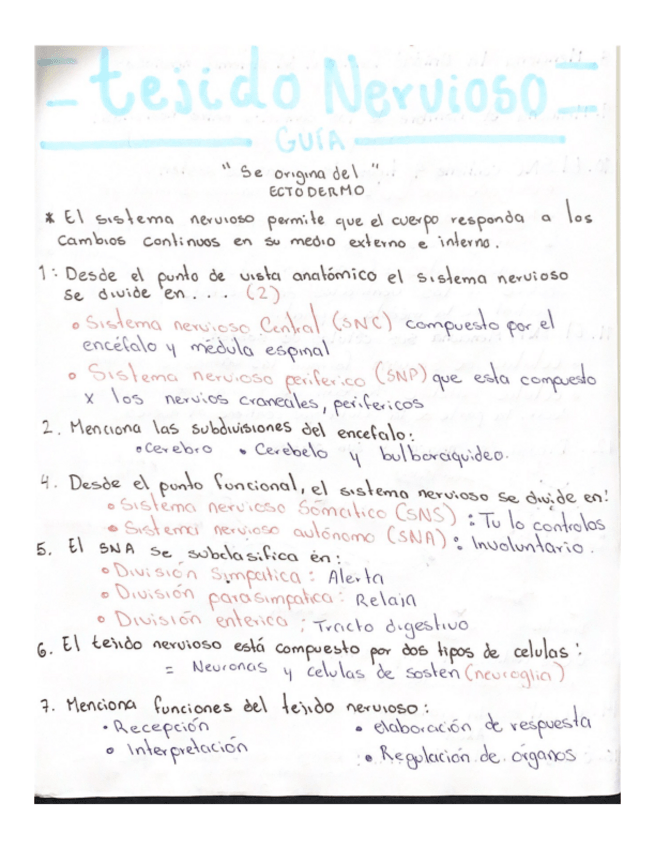 tejido Nervioso
GUÍA
" Se origina del "
ECTODERMO
* El sistema nervioso permite que el cuerpo responda a los
cambios continuos en su medio externo e interno.
1: Desde el punto de vista anatómico el sistema nervioso
se divide en . . . (2)
• Sistema nervioso Central (SNC) compuesto por el
encéfalo y médula espinal
• Sistema nervioso periferico (SNP) que esta compuesto
x los nervios craneales, perifericos
2. Menciona las subdivisiones del encefalo:
• Cerebro • Cerebelo y bulboraquideo.
4. Desde el punto funcional, el sistema nervioso se divide en:
• Sistema nervioso Somcitico (SNS) : Tu lo controlas
• Sistema nervioso autónomo (SNA) : Involuntario.
5. El SNA se subclasifica en:
• División Simpatica : Alerta
• División parasimpatica : Relaja
• División enterica : Tracto digestivo
6. El tejido nervioso está compuesto por dos tipos de celulas :
= Neuronas y celulas de sosten (neuroglia)
7. Menciona funciones del tejido nervioso:
• Recepción • elaboración de respuesta
• Interpretación • Regulación de organos